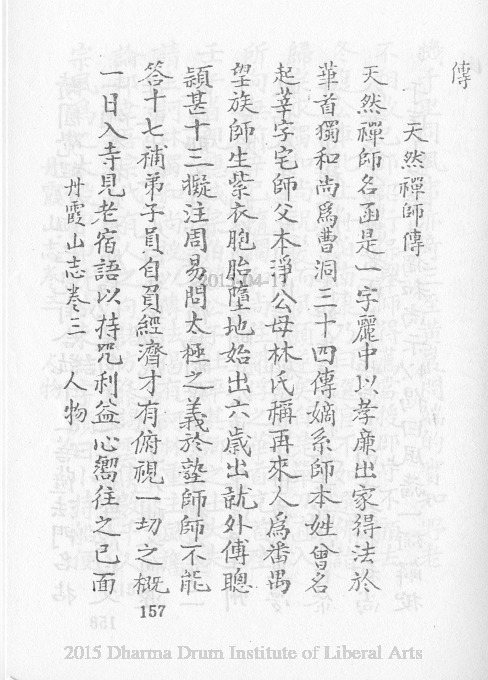 傳
天然禪師傳
天然禪師名函是一字麗中以孝廉出家得法於
華首獨和尚爲曹洞三十四傳嫡系師本姓曾名
起莘字宅師父本淨公母林氏稱再來人爲番禺
望族師生紫衣胞胎墮地始出六歲出就外傅聰
頴甚十三擬注周易問太極之義於塾師師不能
答十七補弟子員自負經濟才有俯視一切之概
一日入寺見老宿語以持咒利益心嚮往之已面
丹霞山志卷三 人物
157
2015 Dharma Drum Institute of Liberal Arts